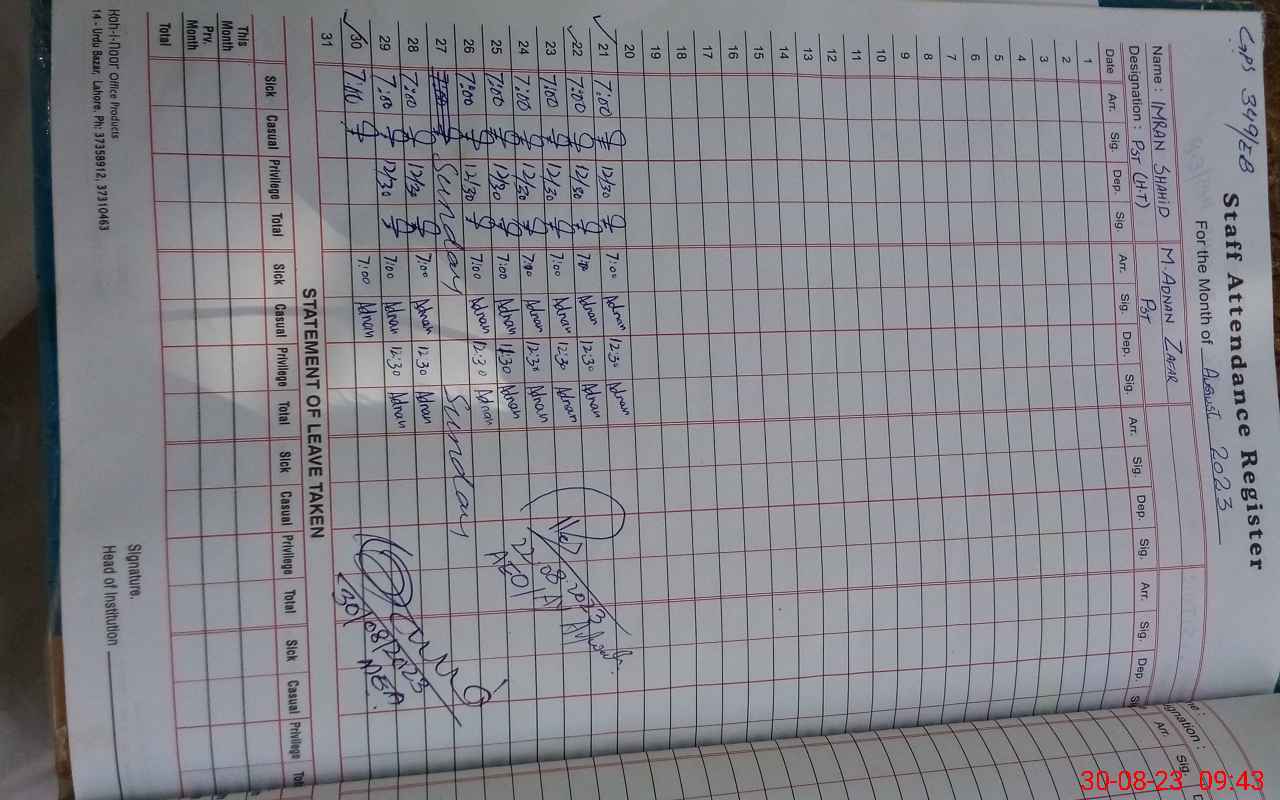 GPS 349/EB
Staff Attendance Register
For the Month of August 2023
Name : IMRAN SHAHID M. ADNAN ZAFAR
Designation : PST (H.T) PST
Date Arr. Sig. Dep. Sig. Arr. Sig. Dep. Sig. Arr. Sig. Dep. Sig. Arr. Sig. Dep.
1
2
3
4
5
6
7
8
9
10
11
12
13
14
15
16
17
18
19
20
21 7:00 12/30 7:00 Adnan 12:30 Adnan
22 7:00 12/30 Adnan 12:30 Adnan
23 7:00 12/30 7:00 Adnan 12:30 Adnan
24 7:00 12/30 Adnan 12:30 Adnan
25 7:00 12/30 7:00 Adnan Adnan
26 7:00 12/30 7:00 Adnan 12:30 Adnan
27 Sunday Sunday
28 7:00 12/30 7:00 Adnan 12:30 Adnan
29 7:00 12/30 7:00 Adnan 12:30 Adnan
30 7:00 Adnan
31
22.08.2023
AEO
30/08/2023
MEA
STATEMENT OF LEAVE TAKEN
Sick Casual Privilege Total Sick Casual Privilege Total Sick Casual Privilege Total Sick Casual Privilege
This Month
Prv. Month
Total
Signature.
Head of Institution
Koh-I-Noor Office Products
14 - Urdu Bazar, Lahore. Ph: 37358912, 37310463
Designation :
Arr. Sig.
30-08-23 09:43